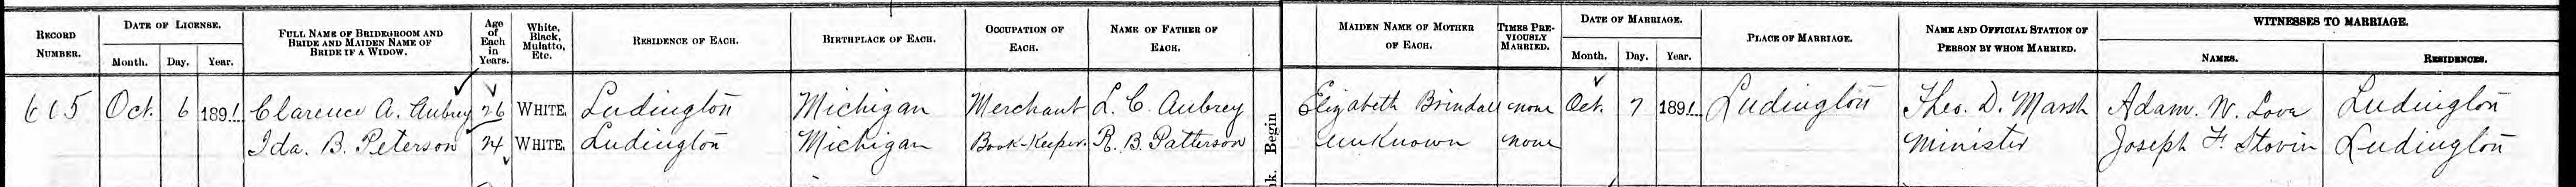 RECORD NUMBER. DATE OF LICENSE. Month. Day. Year. FULL NAME OF BRIDEGROOM AND BRIDE AND MAIDEN NAME OF BRIDE IF A WIDOW. Age of Each in Years. White, Black, Mulatto, Etc. RESIDENCE OF EACH. BIRTHPLACE OF EACH. OCCUPATION OF EACH. NAME OF FATHER OF EACH. MAIDEN NAME OF MOTHER OF EACH. TIMES PREVIOUSLY MARRIED. DATE OF MARRIAGE. Month. Day. Year. PLACE OF MARRIAGE. NAME AND OFFICIAL STATION OF PERSON BY WHOM MARRIED. WITNESSES TO MARRIAGE. NAMES. RESIDENCES.
615 Oct. 6 1891 Clarence A. Aubrey 26 WHITE. Ludington Michigan Merchant L. C. Aubrey Elizabeth Brindall none Oct. 7 1891 Ludington Theo. D. Marsh Adam. W. Lova Ludington
Ida. B. Peterson 24 WHITE. Ludington Michigan Book-Keeper. R. B. Patterson unknown none Minister Joseph F. Stovin Ludington
Begin